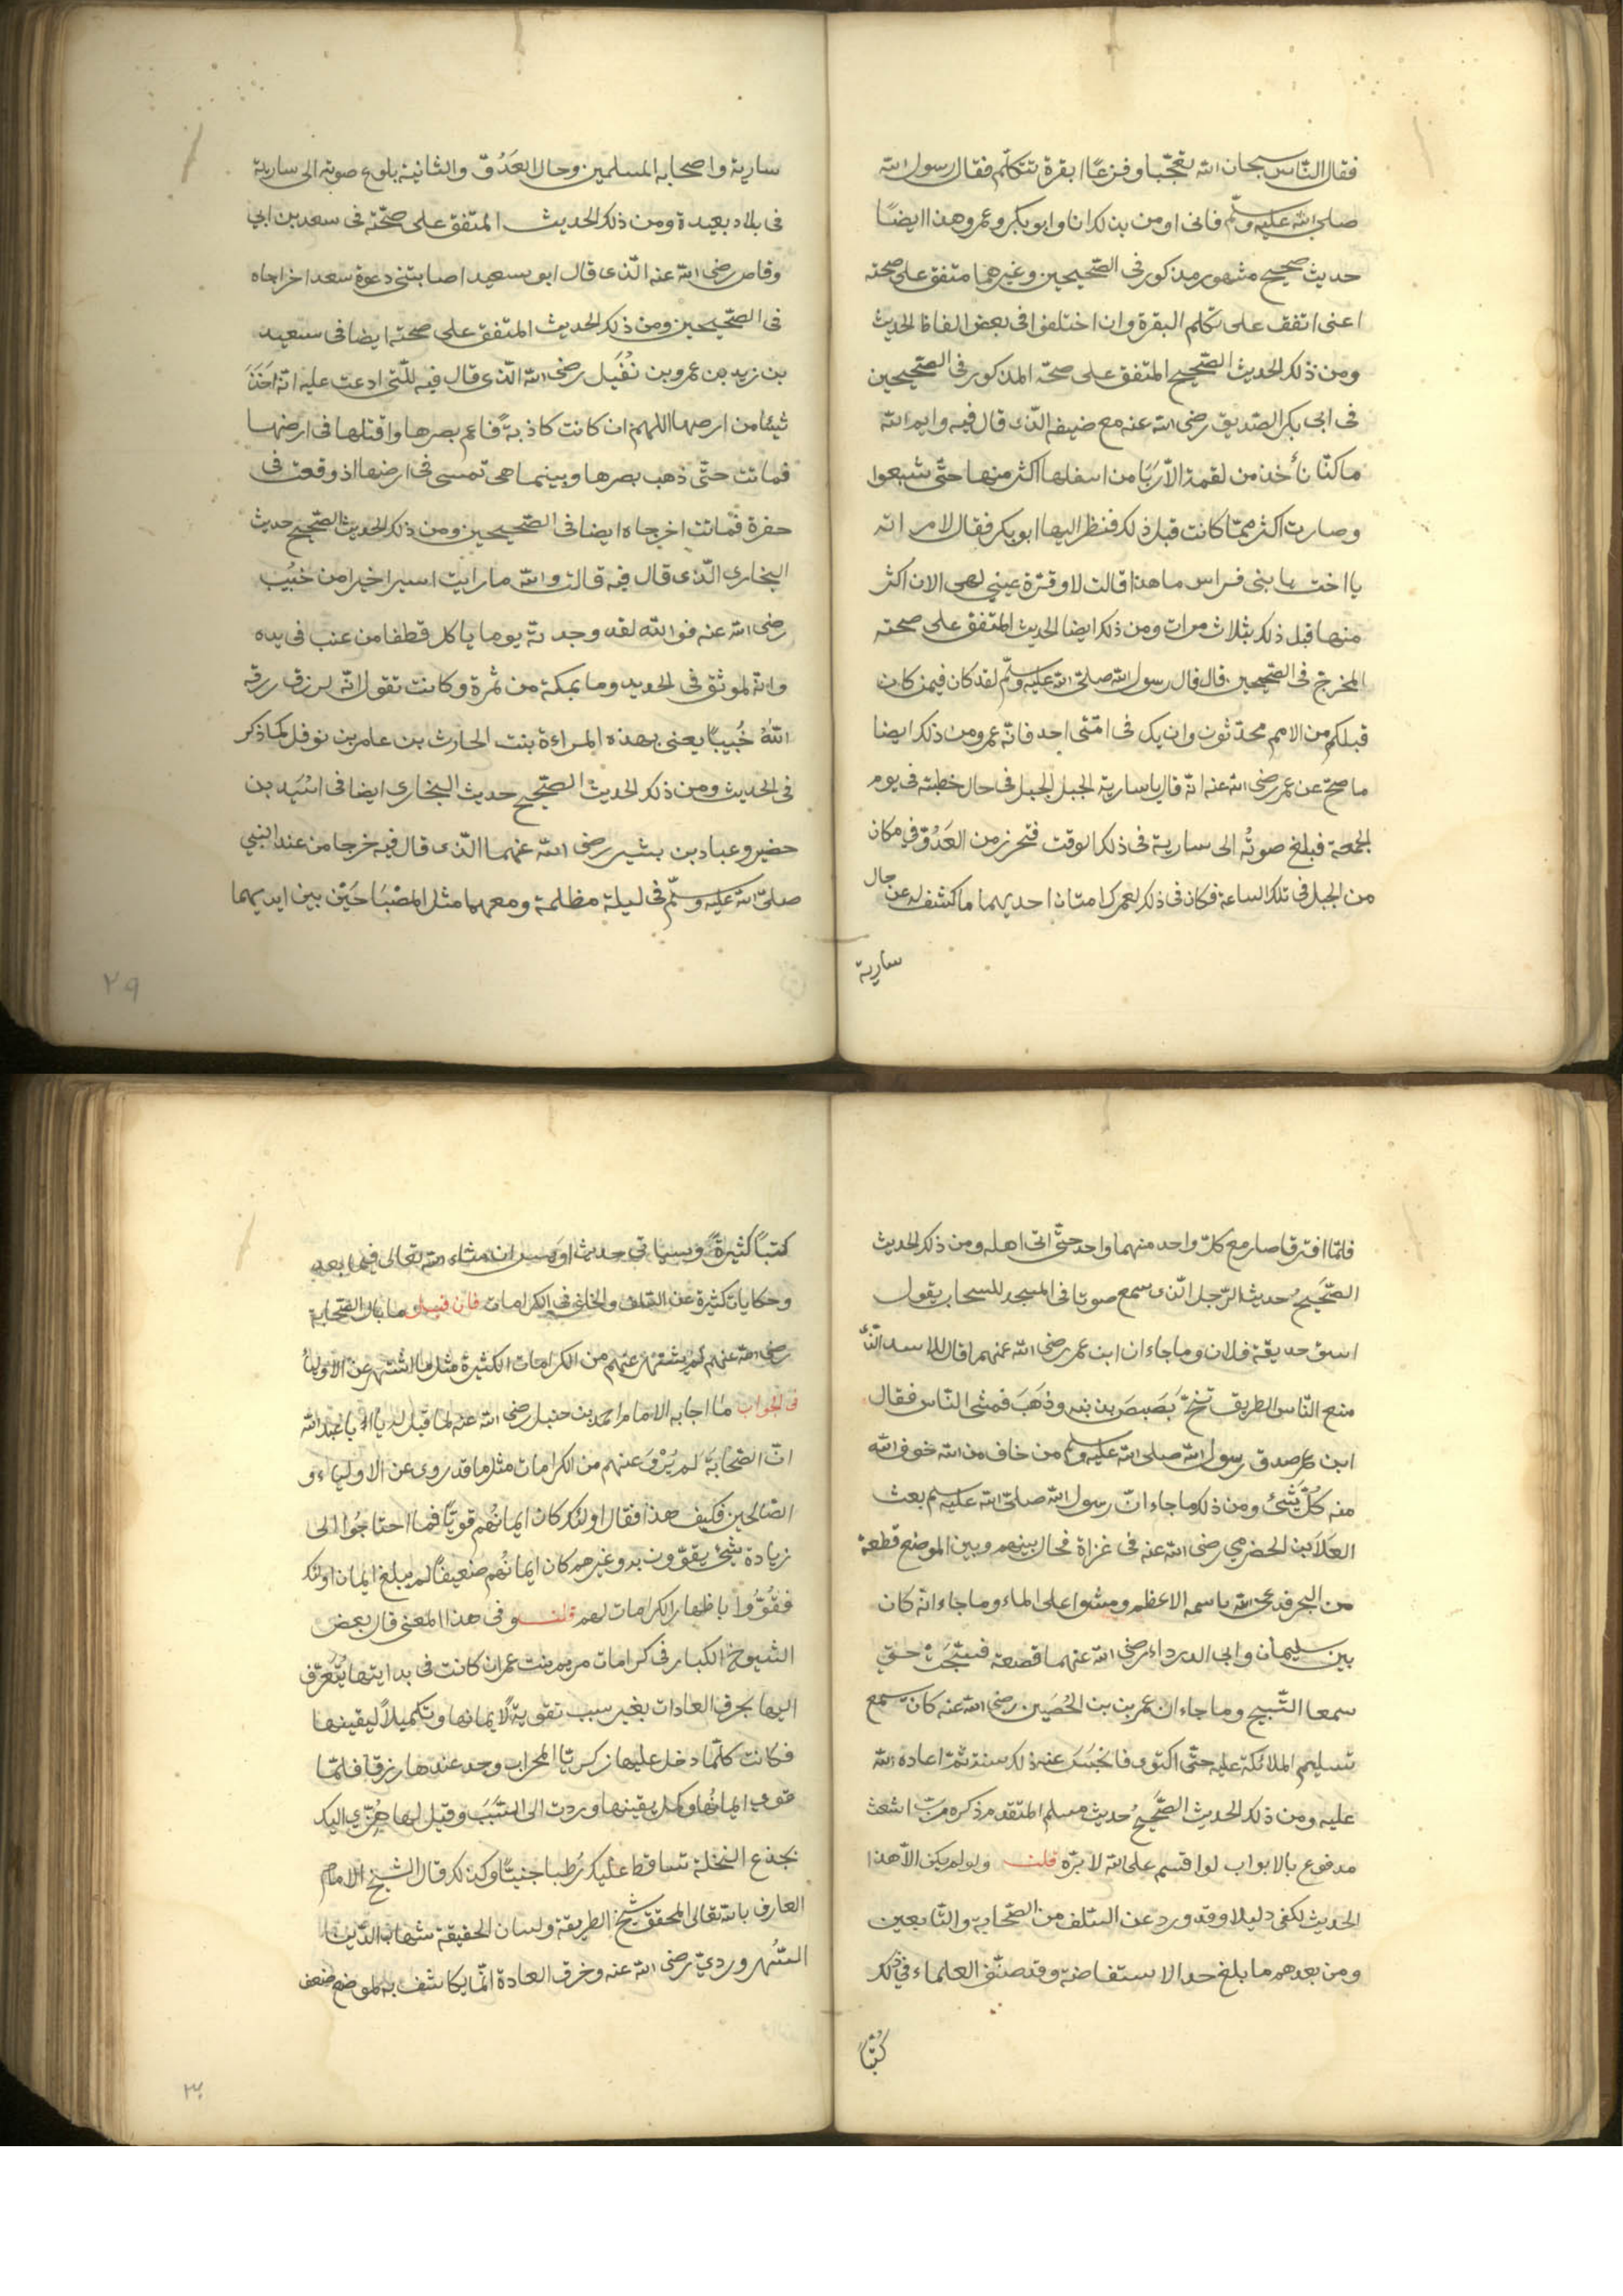 فقال الناس سبحان الله تعجّبا وفزعًا ابقرة تتكلّم فقال رسول الله
صلى الله عليه وسلّم فانى اومن بذلك انا وابو بكر وعمر وهذا ايضًا
حديث صحيح مشهور مذكور فى الصّحيحين وغيرهما متفق على صحته
اعنى اتفق على تكلم البقرة وان اختلفوا فى بعض الفاظ الحديث
ومن ذلك الحديث الصّحيح المتفق على صحّته المذكور فى الصّحيحين
فى ابى بكر الصّديق رضى الله عنه مع ضيفه الّذى قال فيه وايم الله
ما كنّا نأخذ من لقمة الّا ربا من اسفلها اكثر منها حتّى شبعوا
وصارت اكثر ممّا كانت قبل ذلك فنظر اليها ابو بكر فقال لامراته
يا اخت بنى فراس ما هذا قالت لا وقرّة عينى لهى الان اكثر
منها قبل ذلك بثلاث مرات ومن ذلك ايضا الحديث المتفق على صحته
المخرج فى الصّحيحين قال قال رسول الله صلّى الله عليه وسلّم لقد كان فيمن كان
قبلكم من الامم محدّثون وان يك فى امّتى احد فانّه عمر ومن ذلك ايضا
ما صحّ عن عمر رضى الله عنه انّه قال يا سارية الجبل الجبل فى حال خطبته فى يوم
الجمعة فبلغ صوتُه الى سارية فى ذلك الوقت فتحرز من العَدُوّ فى مكان
من الجبل فى تلك الساعة فكان فى ذلك لعمر كرامتان احديهما ما كشف له عن حال
سارية
سارية واصحابه المسلمين وحال العَدُوّ والثانية بلوغ صوته الى سارية
فى بلاد بعيدة ومن ذلك الحديث المتفق على صحّته فى سعد بن ابى
وقاص رضى الله عنه الّذى قال ابو سعيد اصابتنى دعوة سعد اخرجاه
فى الصّحيحين ومن ذلك الحديث المتفق على صحته ايضا فى سعيد
بن زيد بن عمرو بن نُفَيل رضى الله الذى قال فيه للّتى ادعت عليه انّه اخذ
شيئا من ارضها اللهم ان كانت كاذبةً فاعم بصرها واقتلها فى ارضها
فماتت حتّى ذهب بصرها وبينما هى تمشى فى ارضها اذ وقعت فى
حفرة فماتت اخرجاه ايضا فى الصّحيحين ومن ذلك الحديث الصّحيح حديث
البخارى الّذى قال فيه قالت والله ما رايت اسيرا خيرا من خُبَيْب
رضى الله عنه فوالله لقد وجدته يوما ياكل قطفا من عنب فى يده
وانّه لموثق فى الحديد وما بمكة من ثمرة وكانت تقول انّه لرزق رزقه
اللهُ خُبيبًا يعنى بهذه المراءة بنت الحارث بن عامر بن نوفل كما ذكر
فى الحديث ومن ذلك الحديث الصّحيح حديث البخارى ايضا فى اسَيد بن
حضير وعباد بن بشير رضى الله عنهما الّذى قال فيه خرجا من عند النبي
صلّى الله عليه وسلّم فى ليلة مظلمة ومعهما مثل المصْبَاحَيْن بين ايديهما
٢٩
فلمّا افترقا صار مع كلّ واحد منهما واحد حتّى اتى اهله ومن ذلك الحديث
الصّحيح حديث الرّجل الّذى سمع صوتا فى السحاب يقول
اسق حديقة فلان وما جاء ان ابن عمر رضى الله عنهما قال للاسد الّذى
منع النّاس الطريق تنحّ بَصبصَ بذنبه وذهَبَ فمشى النّاس فقال
ابن عمر صدق رسول الله صلى الله عليه وسلم من خاف من الله خوف الله
منه كُلّ شئ ومن ذلك ما جاء انّ رسول الله صلّى الله عليه وسلم بعث
العَلَا بن الحضرمي رضى الله عنه فى غزاة فحال بينهم وبين الموضع قطعة
من البحر فدعى الله باسمه الاعظم ومشوا على الماء وما جاء انّه كان
بين سليمان وابى الدرداء رضى الله عنهما قصعة فسبّحَتْ حتى
سمعا التّسبيح وما جاء ان عمر بن بن الحُصَين رضى الله عنه كان يسمع
تسليم الملائكة عليه حتّى اكتوى فانحبَسَ عنه ذلك سنة ثمّ اعاده الله
عليه ومن ذلك الحديث الصّحيحُ حديث مسلم المتقدم ذكره ربّ اشعث
مدفوع بالابواب لو اقسم على الله لابرّه قلت ولو لم يكن الّا هذا
الحديث لكفى دليلا وقد ورد عن السّلف من الصّحابة والتّابعين
ومن بعدهم ما بلغ حد الاستفاضة وقد صنّف العلماء فى ذلك
كُتبًا
كتبًا كثيرةً وسياتى حديث اويس ان شاء الله تعالى فيما بعد
وحكايات كثيرة عن السّلف والخلف فى الكرامات فان قيل ما بال الصّحابة
رضى الله عنهم لم يشتهر عنهم من الكرامات الكثيرة مثل ما اشتهر عن الاولياء
فى الجواب ما اجابه الامام احمد بن حنبل رضى الله عنه لما قيل له يا ابا عبد الله
انّ الصّحابَة لم يُرْوَ عنهم من الكرامات مثل ما قد روى عن الاولياء و
الصّالحين فكيف هذا فقال اولئك كان ايمانُهم قويّا فما احتاجُوا الى
زيادة شئ يقوّون به وغيرهم كان ايمانُهم ضعيفًا لم يبلغ ايمان اولئك
فقُوُّوا باظهار الكرامات لهم قلت وفى هذا المعنى قال بعض
الشيوخ الكبار فى كرامات مريم بنت عمران كانت فى بدايتها يُتَعرّف
اليها بخرق العادات بغير سبب تقويةً لايمانها وتكميلاً ليقينها
فكانت كلّما دخل عليها زكريّا المحراب وجد عندها رزقا فلمّا
قوى ايمانُها وكمل يقينها وردت الى السّبَبَ وقيل لها هُزّي اليك
بجذع النخلة تساقط عليك رُطبا جنيّا وكذلك قال الشيخ الامام
العارف بالله تعالى المحقق شيخ الطريقة ولسان الحقيقة شهاب الدّين
السُّهروردى رضى الله عنه وخرق العادة انّما يكاشف به لموضع ضعف
٣٠